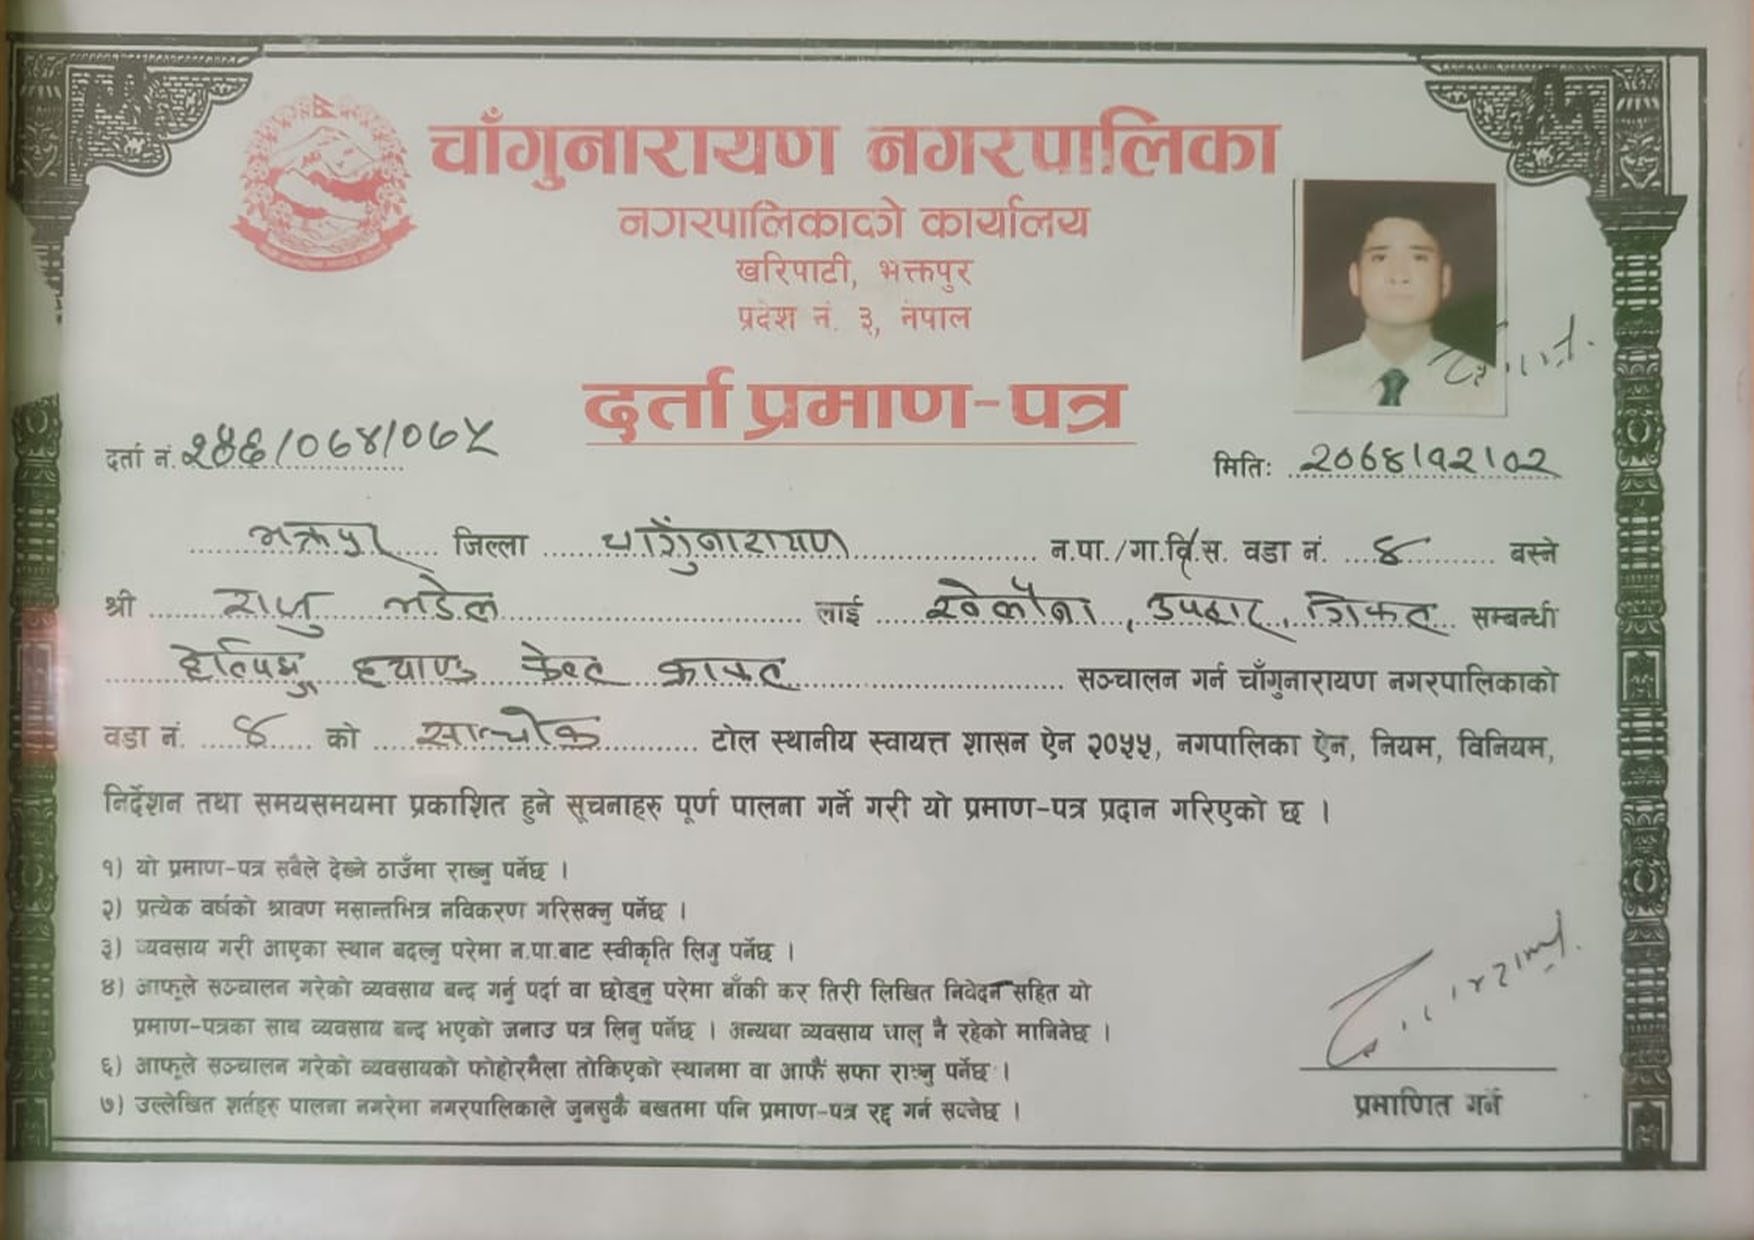 चाँगुनारायण नगरपालिका
नगरपालिकाको कार्यालय
खरिपाटी, भक्तपुर
प्रदेश नं. ३, नेपाल
दर्ता प्रमाण-पत्र
दर्ता नं. २४६/०७४/०७५
मितिः २०७४।१२।०२
भक्तपुर जिल्ला चाँगुनारायण न.पा./गा.वि.स. वडा नं. ४ बस्ने
श्री राजु भडेल लाई खेलौना, उपहार, सम्बन्धी
ह्याण्ड फेल्ट क्राफ्ट सञ्चालन गर्न चाँगुनारायण नगरपालिकाको
वडा नं. ४ को टोल स्थानीय स्वायत्त शासन ऐन २०५५, नगपालिका ऐन, नियम, विनियम,
निर्देशन तथा समयसमयमा प्रकाशित हुने सूचनाहरु पूर्ण पालना गर्ने गरी यो प्रमाण-पत्र प्रदान गरिएको छ ।
१) यो प्रमाण-पत्र सबैले देख्ने ठाउँमा राख्नु पर्नेछ ।
२) प्रत्येक वर्षको श्रावण मसान्तभित्र नविकरण गरिसक्नु पर्नेछ ।
३) व्यवसाय गरी आएका स्थान बदल्नु परेमा न.पा.बाट स्वीकृति लिनु पर्नेछ ।
४) आफूले सञ्चालन गरेको व्यवसाय बन्द गर्नु पर्दा वा छोड्नु परेमा बाँकी कर तिरी लिखित निवेदन सहित यो
प्रमाण-पत्रका साथ व्यवसाय बन्द भएको जनाउ पत्र लिनु पर्नेछ । अन्यथा व्यवसाय चालु नै रहेको मानिनेछ ।
६) आफूले सञ्चालन गरेको व्यवसायको फोहोरमैला तोकिएको स्थानमा वा आफैं सफा राख्नु पर्नेछ ।
७) उल्लेखित शर्तहरु पालना नगरेमा नगरपालिकाले जुनसुकै बखतमा पनि प्रमाण-पत्र रद्द गर्न सक्नेछ ।
प्रमाणित गर्ने